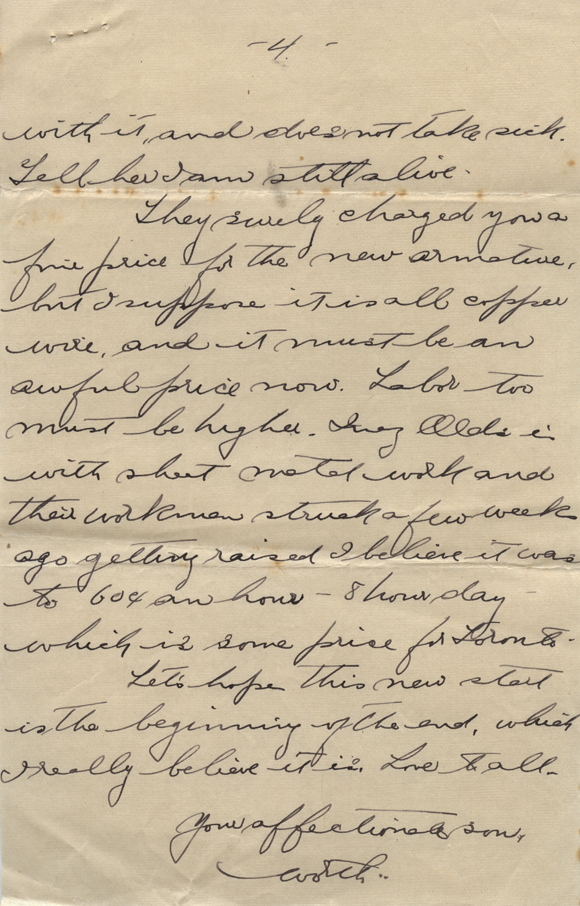 -4-
with it, and does not take sick.
Tell her I am still alive.
They surely charged you a
fine price for the new armature,
but I suppose it is all copper
wire, and it must be an
awful price now. Labor too
must be higher. Inez Olds is
with sheet metal work and
their workmen struck a few weeks
ago getting raised I believe it was
to 60¢ an hour - 8 hour day -
which is some price for Toronto.
Let's hope this new start
is the beginning of the end, which
I really believe it is. Love to all-
Your affectionate son,
Worth..